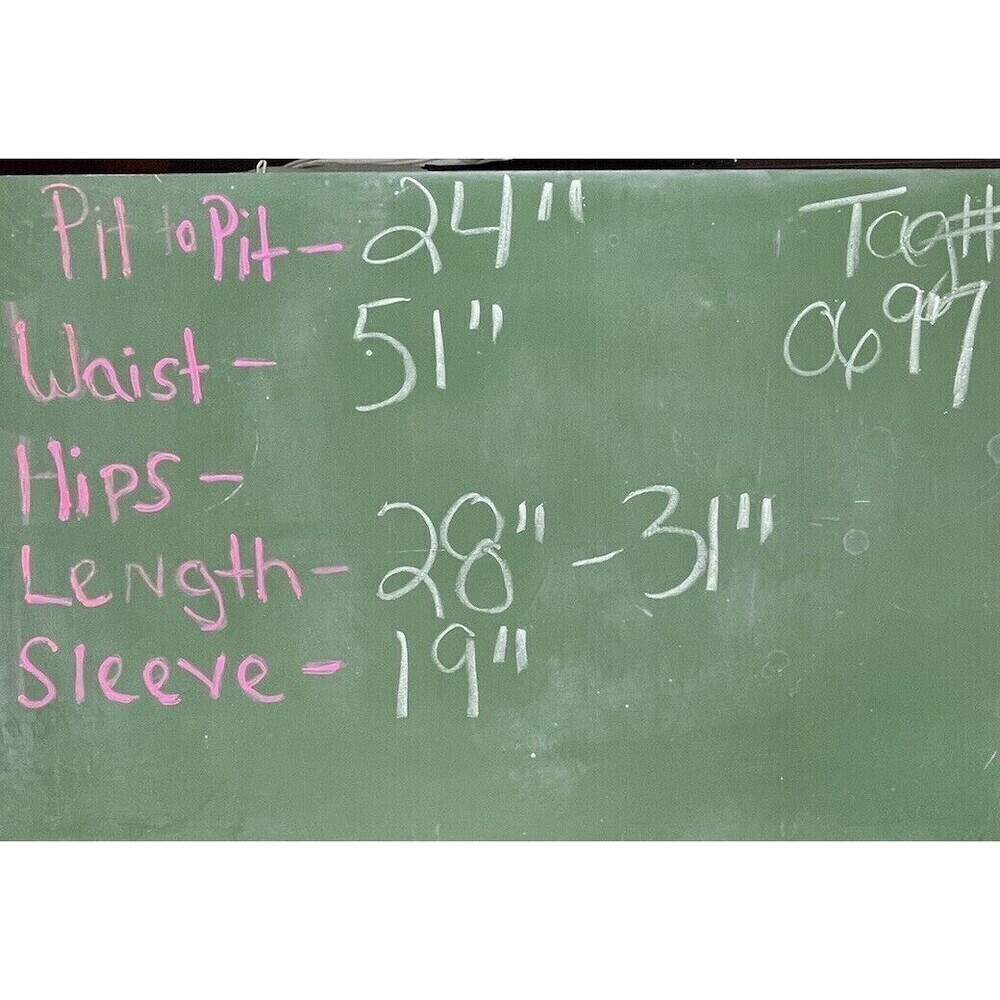 Pit to Pit - 24"
Tag#
0697
Waist - 51"
Hips -
Length - 28" - 31"
Sleeve - 19"